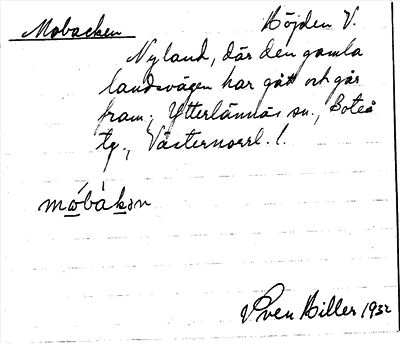 Mobacken Höjden V.
Nyland, där den gamla
landsvägen har gått och går
fram; Ytterlännäs sn., Boteå
tg., Västernorrl. l.
mo̲bàk̲ən
Sven Hiller 1932